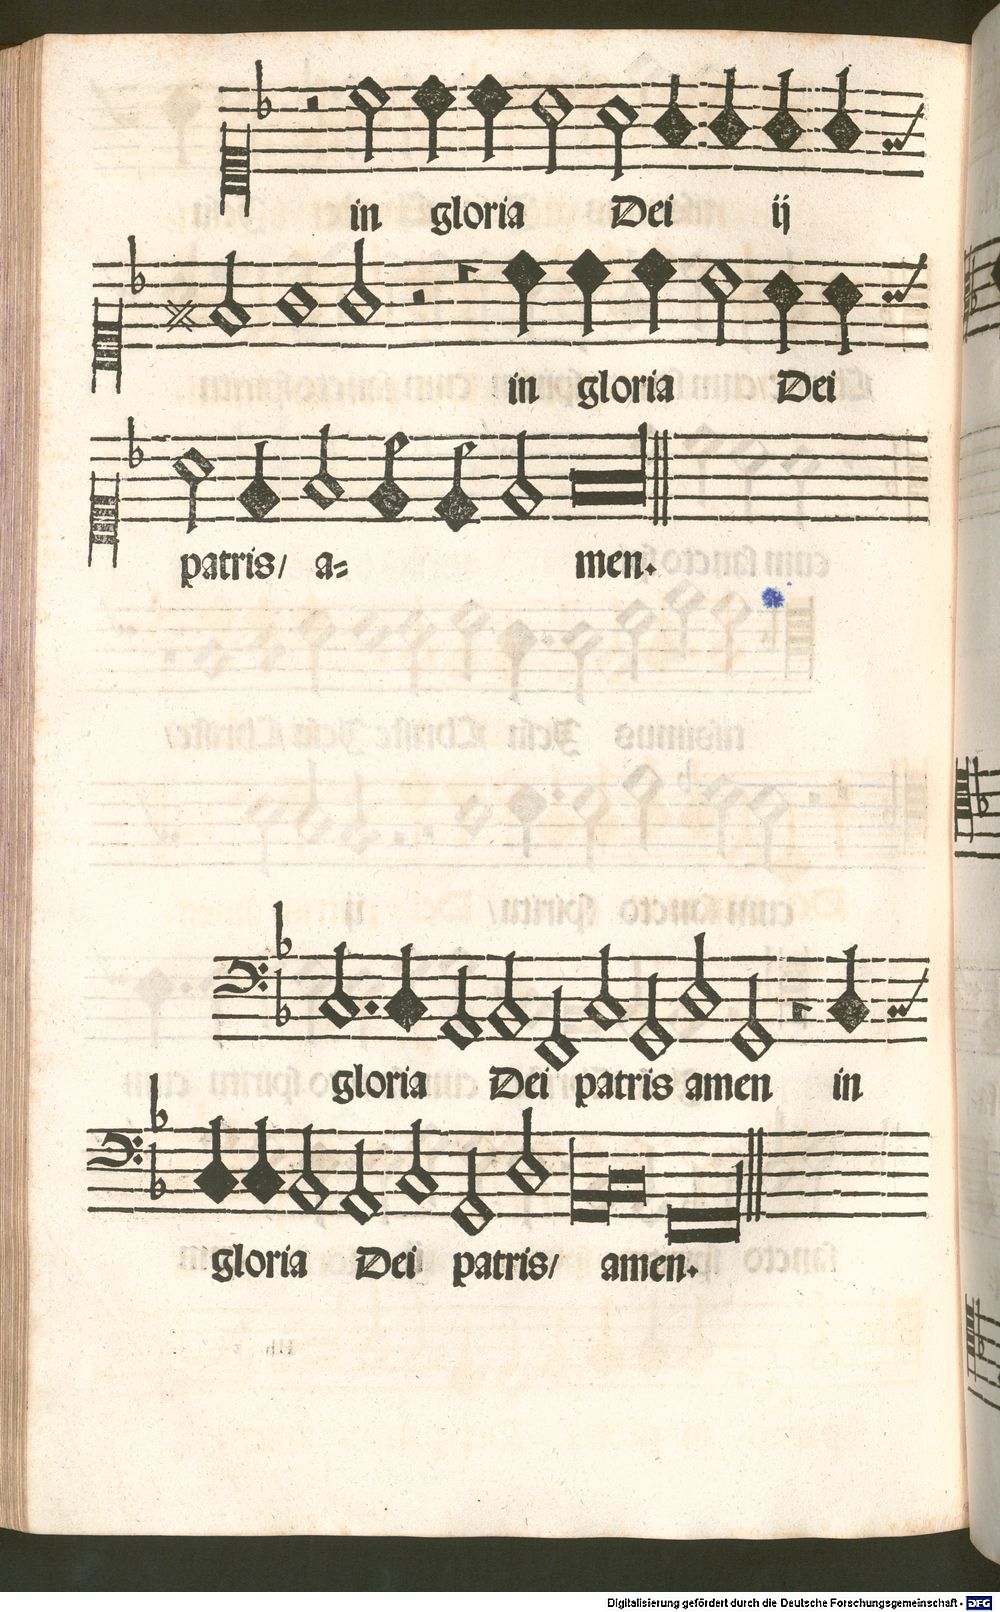 in gloria Dei ij
in gloria Dei
patris/ a=  men.
gloria Dei patris amen in
gloria Dei patris/ amen.
Digitalisierung gefördert durch die Deutsche Forschungsgemeinschaft - DFG